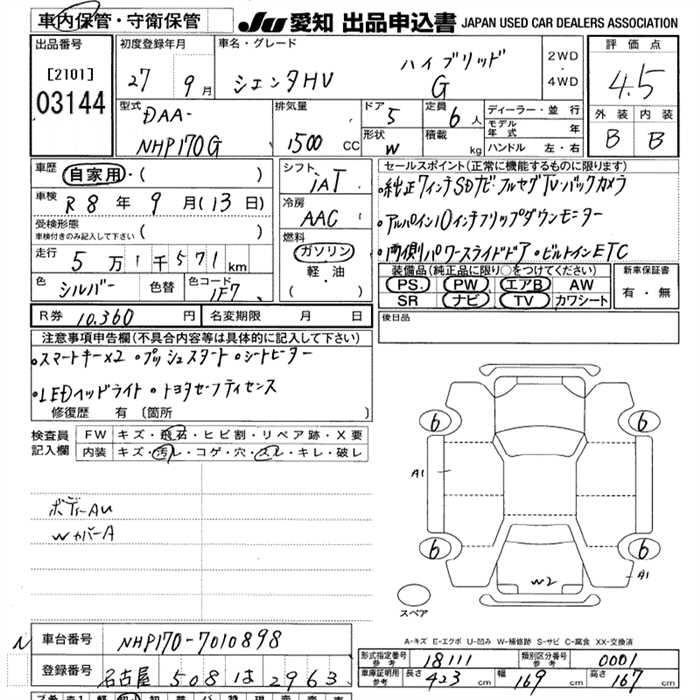 車内保管・守衛保管
JU 愛知 出品申込書 JAPAN USED CAR DEALERS ASSOCIATION
出品番号
[2101]
03144
初度登録年月
27 年 9 月
車名・グレード
シエンタHV ハイブリッド G
2WD
4WD
評価点
4.5
外装 内装
B B
型式
DAA-
NHP170G
排気量
1500 CC
ドア 5
形状 W
定員 6 人
積載 kg
ディーラー・並行
モデル年式 年
ハンドル 左・右
車歴 自家用・( )
車検 R8年 9月(13日)
受検形態
車検付きのみ記入して下さい ( )
走行 5万1千571km
色 シルバー 色替 色コード 1F7
シフト
iAT
冷房
AAC
燃料
ガソリン
軽・油
( )
セールスポイント(正常に機能するものに限ります)
・純正7インチSDナビ・フルセグTV・バックカメラ
・アルパイン10インチフリップダウンモニター
・両側パワースライドドア・ビルトインETC
装備品(純正品に限り○をつけてください)
PS PW エアB AW
SR ナビ TV カワシート
新車保証書
有・無
R券 10,360 円 名変期限 月 日
後日品
注意事項申告欄(不具合内容等は具体的に記入して下さい)
・スマートキー×2 ・プッシュスタート ・シートヒーター
・LEDヘッドライト ・トヨタセーフティセンス
修復歴 有 〔箇所
検査員記入欄
FW キズ・飛石・ヒビ割・リペア跡・X要
内装 キズ・汚レ・コゲ・穴・スレ・キレ・破レ
ボディーAU
WカバーA
6 6
A1
6 6
W2 A1
スペア
A-キズ E-エクボ U-凹み W-補修跡 S-サビ C-腐食 XX-交換済
N
車台番号 NHP170-7010898
登録番号 名古屋 508 は 2963
形式指定番号 参考 18111 類別区分番号 参考 0001
車庫証明用 参考 長さ 423 cm 幅 169 cm 高さ 167 cm